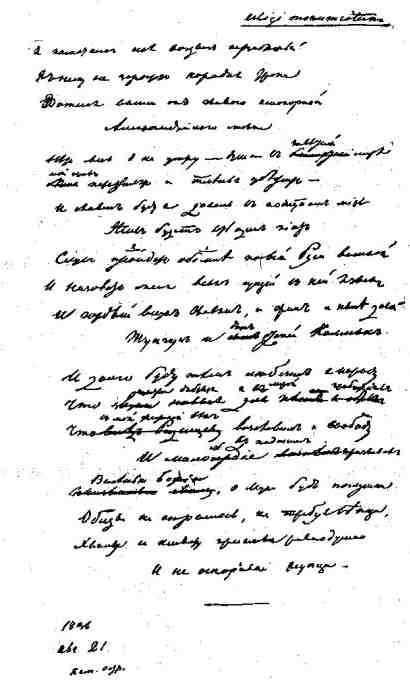 Exegi monumentum
Я памятникъ себѣ воздвигъ нерукотворный
Къ нему не заростетъ народная тропа
Вознесся выше онъ главою непокорной
Александрійскаго столпа
Нѣтъ весь я не умру — душа въ завѣтной лирѣ
Мой прахъ переживетъ и тлѣнья убѣжитъ —
И славенъ буду я доколь въ подлунномъ мірѣ
Живъ будетъ хоть одинъ піитъ
Слухъ обо мнѣ пройдетъ по всей Руси великой
И назоветъ меня всякъ сущій въ ней языкъ
И гордый внукъ Славянъ, и Финнъ, и нынѣ дикой
Тунгузъ и другъ степей Калмыкъ.
И долго буду тѣмъ любезенъ я народу
Что чувства добрыя я лирой пробуждалъ
Что въ мой жестокій вѣкъ возславилъ я свободу
И милость къ падшимъ призывалъ
Велѣнью божію, о муза будь послушна
Обиды не страшась, не требуя вѣнца,
Хвалу и клевету пріемли равнодушно
И не оспоривай глупца —
1836
авг. 21
Кам. остр.